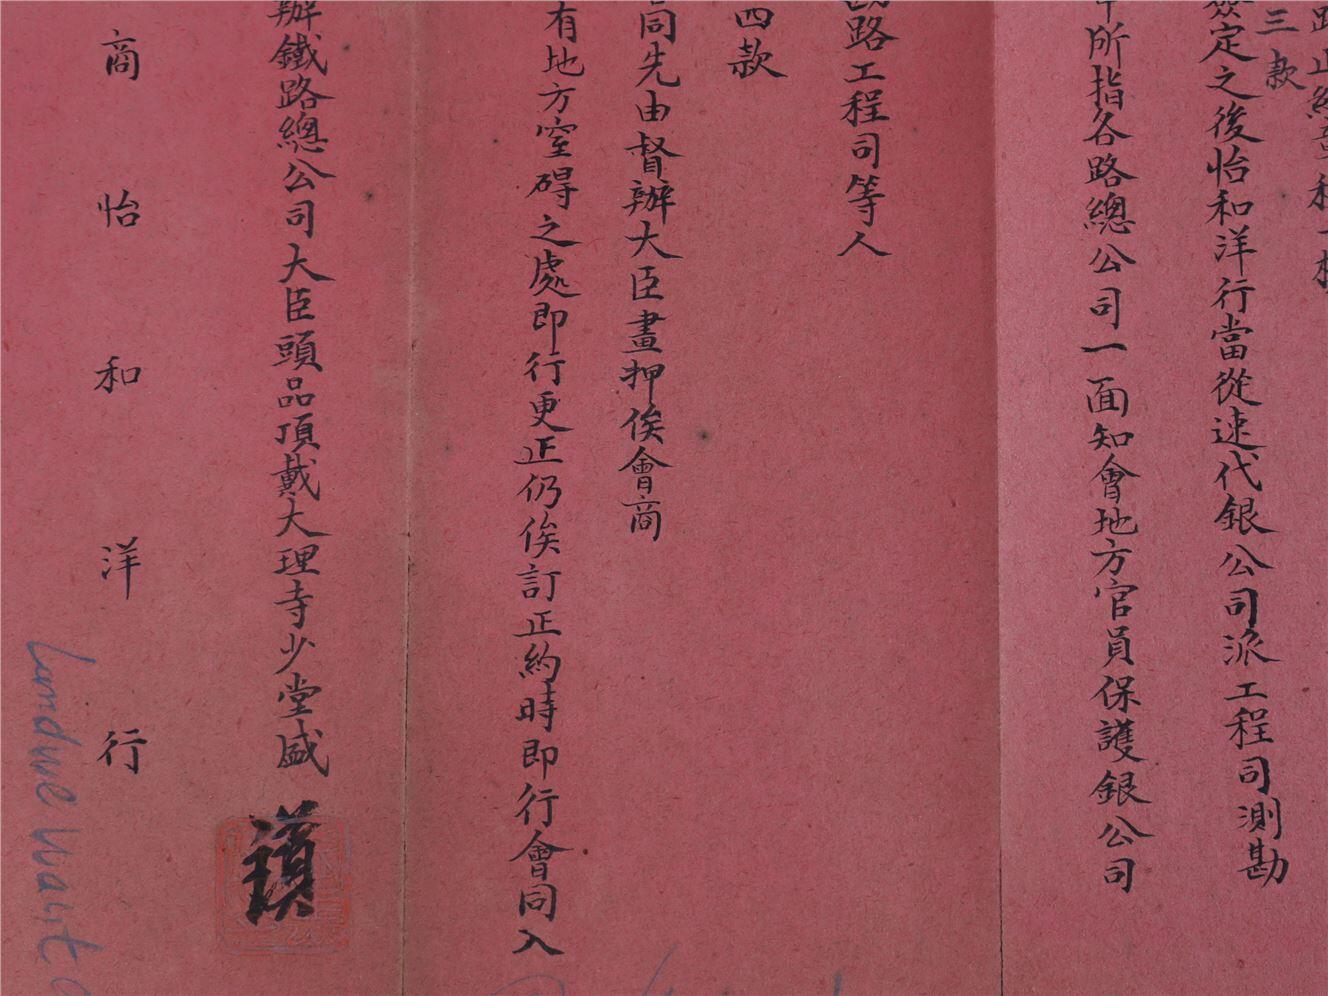 路正
三款
簽定之後怡和洋行當從速代銀公司派工程司測勘
所指各路總公司一面知會地方官員保護銀公司
路工程司等人
四款
同先由督辦大臣畫押俟會商
有地方窒碍之處即行更正仍俟訂正約時即行會同入
辦鐵路總公司大臣頭品頂戴大理寺少堂盛
商怡和洋行